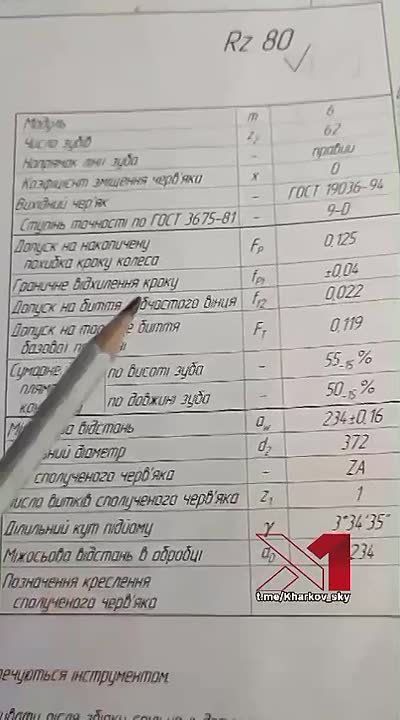 Rz 80
Модуль m 6
Число зубів z₂ 62
Напрямок лінії зуба - правий
Коефіцієнт зміщення черв'яка x 0
Вихідний черв'як - ГОСТ 19036-94
Ступінь точності по ГОСТ 3675-81 - 9-D
Допуск на накопичену
похибка кроку колеса Fp 0,125
Граничне відхилення кроку fp1 ±0,04
Допуск на биття зубчастого вінця f12 0,022
Допуск на биття Fт 0,119
базової
Сумарне по висоті зуба - 55₋₁₅%
по довжині зуба - 50₋₁₅%
відстань aw 234±0,16
діаметр d₂ 372
сполученого черв'яка - ZA
Число витків сполученого черв'яка z₁ 1
Ділильний кут підйому γ 3°34'35"
Міжосьова відстань в обробці a₀ 234
Позначення креслення
сполученого черв'яка
X1
t.me/Kharkov_sky
інструментом.
після